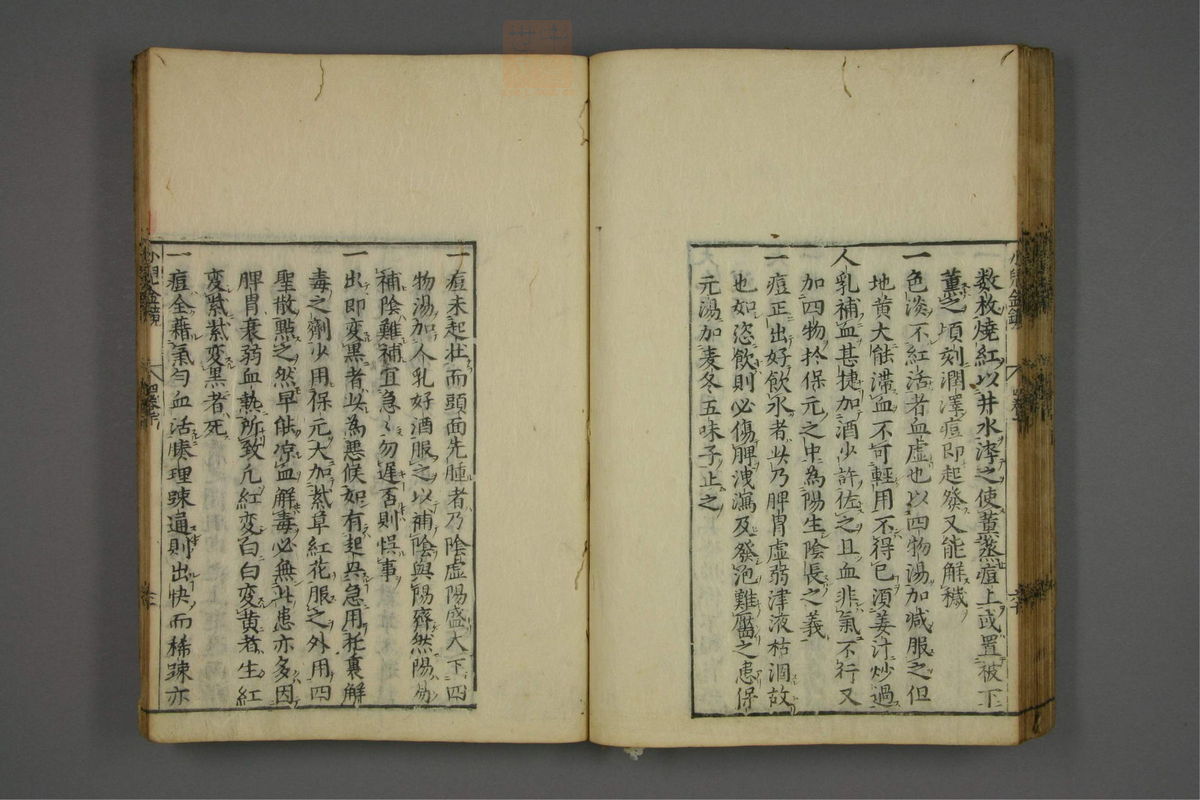 数枚燒紅以井水淬之使薫蒸痘上或置被下
薫之頃刻潤澤痘即起發又能解穢
一色淡不紅活者血虚也以四物湯加减服之但
地黄大能滞血不可輕用不得已須姜汁炒過
人乳補血甚捷加酒少許佐之且血非氣不行又
加四物於保元之中為陽生陰長之義
一痘正出好飲水者此乃脾胃虚弱津液枯涸故
也如恣飲則必傷脾洩瀉及發泡難靨之患保
元湯加麦冬五味子止之
一痘未起壮而頭面先腫者乃陰虚陽盛大下四
物湯加人乳好酒服之以補陰與陽齊然陽易
補陰難補宜急急勿遲否則悞事
一出即変黒者此為悪候如有起兵急用托裏解
毒之劑少用保元大加紫草紅花服之外用四
聖散點之然早能凉血解毒必無此患亦多因
脾胃衰弱血熱所致凢紅変白白変黄者生紅
変紫紫変黒者死
一痘全藉氣匀血活腠理踈通則出快而稀踈亦
小兒金鏡